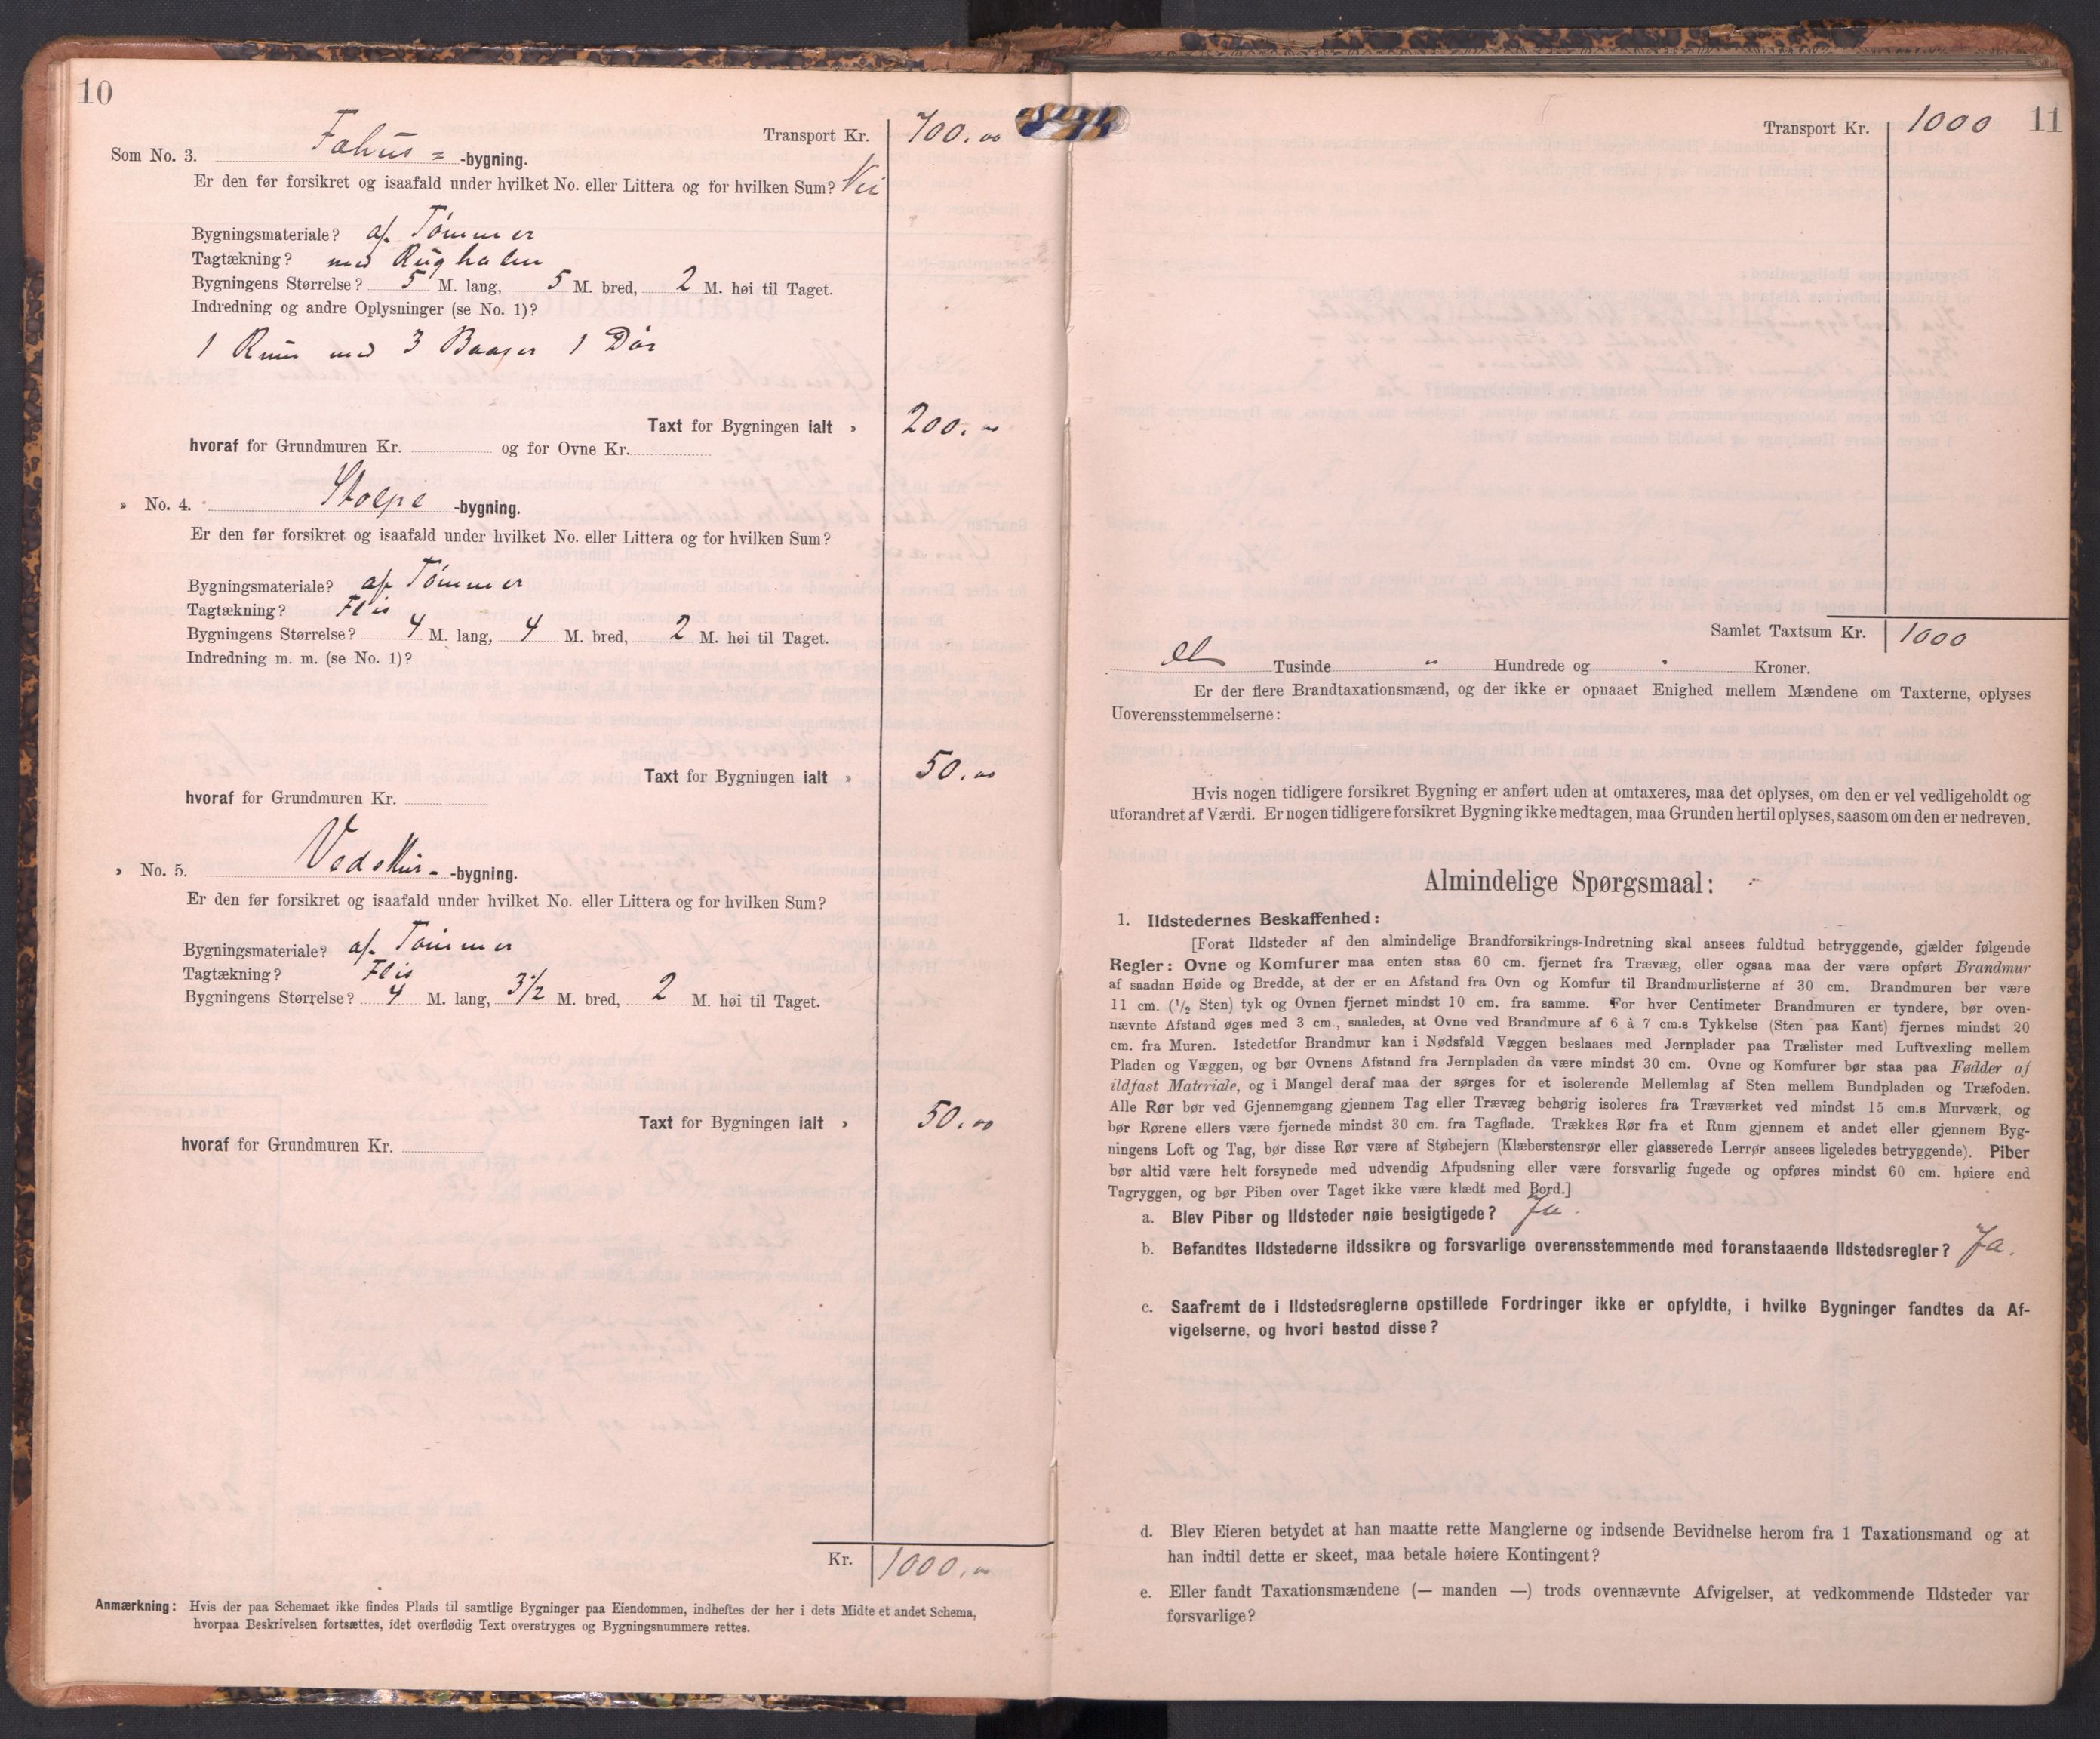 10
Transport Kr. 700.00
Som No. 3. Fahus = -bygning.
Er den før forsikret og isaafald under hvilket No. eller Littera og for hvilken Sum? Nei
Bygningsmateriale? af Tømmer
Tagtækning? med Rughalm
Bygningens Størrelse? 5 M. lang, 5 M. bred, 2 M. høi til Taget.
Indredning og andre Oplysninger (se No. 1)?
1 Rum med 3 Baaser 1 Dør
Taxt for Bygningen ialt » 200. 00
hvoraf for Grundmuren Kr. og for Ovne Kr.
» No. 4. Stolpe -bygning.
Er den før forsikret og isaafald under hvilket No. eller Littera og for hvilken Sum?
Bygningsmateriale? af Tømmer
Tagtækning? Flis
Bygningens Størrelse? 4 M. lang, 4 M. bred, 2 M. høi til Taget.
Indredning m. m. (se No. 1)?
Taxt for Bygningen ialt » 50.00
hvoraf for Grundmuren Kr.
» No. 5. Vedskur- -bygning.
Er den før forsikret og isaafald under hvilket No. eller Littera og for hvilken Sum?
Bygningsmateriale? af Tømmer
Tagtækning? Flis
Bygningens Størrelse? 4 M. lang, 3 1/2 M. bred, 2 M. høi til Taget.
Taxt for Bygningen ialt » 50.00
hvoraf for Grundmuren Kr.
Kr. 1000.00
Anmærkning: Hvis der paa Schemaet ikke findes Plads til samtlige Bygninger paa Eiendommen, indheftes der her i dets Midte et andet Schema,
hvorpaa Beskrivelsen fortsættes, idet overflødig Text overstryges og Bygningsnummere rettes.
11
Transport Kr. 1000
Samlet Taxtsum Kr. 1000
et Tusinde " Hundrede og " Kroner.
Er der flere Brandtaxationsmænd, og der ikke er opnaaet Enighed mellem Mændene om Taxterne, oplyses
Uoverensstemmelserne:
Hvis nogen tidligere forsikret Bygning er anført uden at omtaxeres, maa det oplyses, om den er vel vedligeholdt og
uforandret af Værdi. Er nogen tidligere forsikret Bygning ikke medtagen, maa Grunden hertil oplyses, saasom om den er nedreven.
Almindelige Spørgsmaal:
1. Ildstedernes Beskaffenhed:
[Forat Ildsteder af den almindelige Brandforsikrings-Indretning skal ansees fuldtud betryggende, gjælder følgende
Regler: Ovne og Komfurer maa enten staa 60 cm. fjernet fra Trævæg, eller ogsaa maa der være opført Brandmur
af saadan Høide og Bredde, at der er en Afstand fra Ovn og Komfur til Brandmurlisterne af 30 cm. Brandmuren bør være
11 cm. (1/2 Sten) tyk og Ovnen fjernet mindst 10 cm. fra samme. For hver Centimeter Brandmuren er tyndere, bør oven-
nævnte Afstand øges med 3 cm., saaledes, at Ovne ved Brandmure af 6 à 7 cm.s Tykkelse (Sten paa Kant) fjernes mindst 20
cm. fra Muren. Istedetfor Brandmur kan i Nødsfald Væggen beslaaes med Jernplader paa Trælister med Luftvexling mellem
Pladen og Væggen, og bør Ovnens Afstand fra Jernpladen da være mindst 30 cm. Ovne og Komfurer bør staa paa Fødder af
ildfast Materiale, og i Mangel deraf maa der sørges for et isolerende Mellemlag af Sten mellem Bundpladen og Træfoden.
Alle Rør bør ved Gjennemgang gjennem Tag eller Trævæg behørig isoleres fra Træværket ved mindst 15 cm.s Murværk, og
bør Rørene ellers være fjernede mindst 30 cm. fra Tagflade. Trækkes Rør fra et Rum gjennem et andet eller gjennem Byg-
ningens Loft og Tag, bør disse Rør være af Støbejern (Klæberstensrør eller glasserede Lerrør ansees ligeledes betryggende). Piber
bør altid være helt forsynede med udvendig Afpudsning eller være forsvarlig fugede og opføres mindst 60 cm. høiere end
Tagryggen, og bør Piben over Taget ikke være klædt med Bord.]
a. Blev Piber og Ildsteder nøie besigtigede? Ja.
b. Befandtes Ildstederne ildssikre og forsvarlige overensstemmende med foranstaaende Ildstedsregler? Ja.
c. Saafremt de i Ildstedsreglerne opstillede Fordringer ikke er opfyldte, i hvilke Bygninger fandtes da Af-
vigelserne, og hvori bestod disse?
d. Blev Eieren betydet at han maatte rette Manglerne og indsende Bevidnelse herom fra 1 Taxationsmand og at
han indtil dette er skeet, maa betale høiere Kontingent?
e. Eller fandt Taxationsmændene (— manden —) trods ovennævnte Afvigelser, at vedkommende Ildsteder var
forsvarlige?